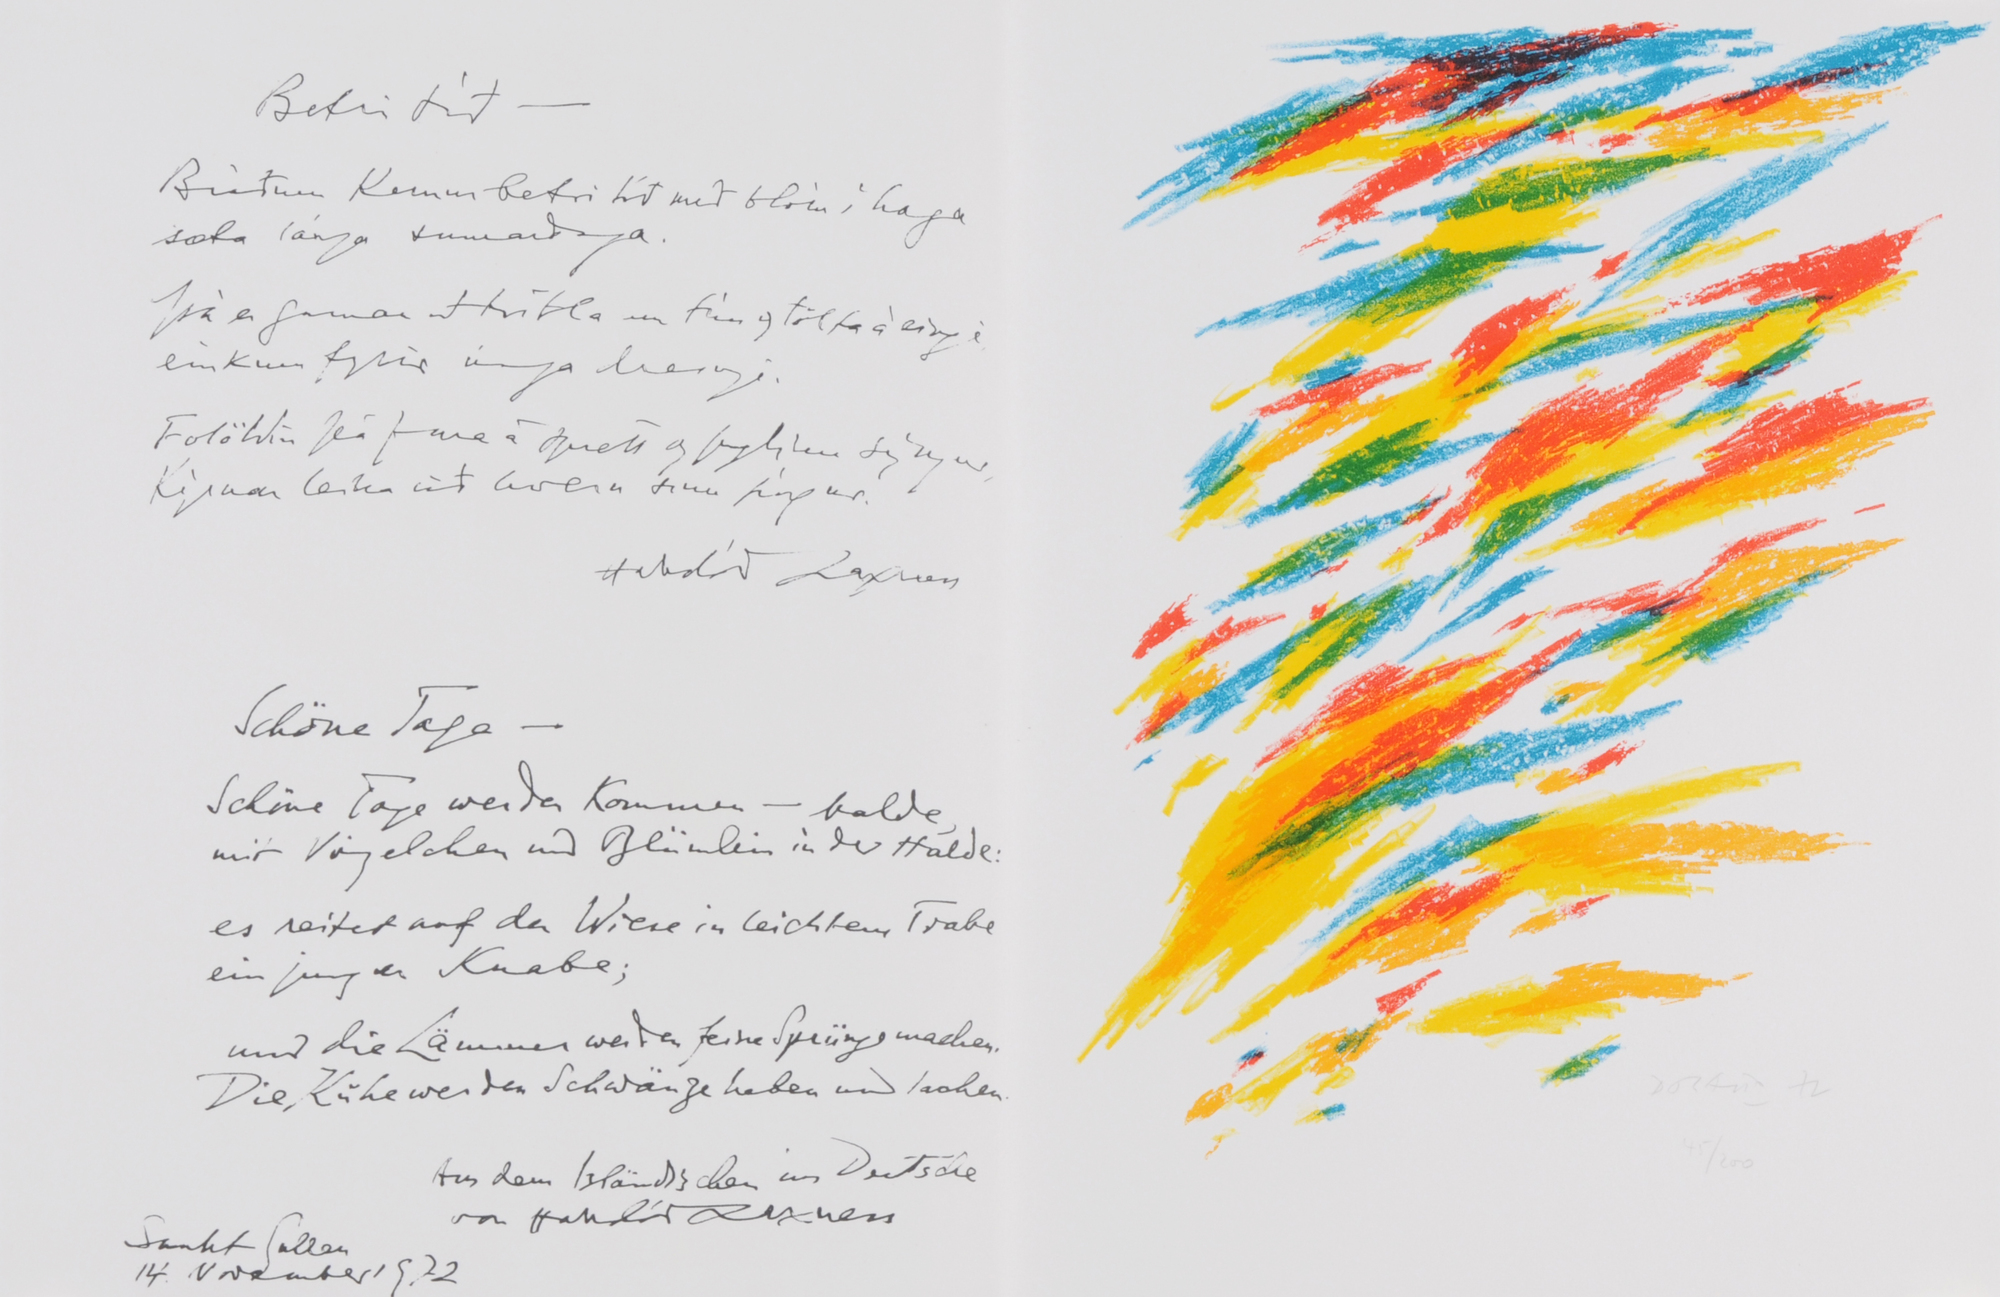 Betri tíð —
Bráðum kemur betri tíð með blóm í haga
sæta lánga sumardaga.
Þá er gaman að trítla um tún og tölta á eingi
einkum fyrir únga dreingi.
Folöldin þá fara á sprett og fuglinn sýngur,
kýrnar leika við hvern sinn fíngur.
Halldór Laxness
Schöne Tage —
Schöne Tage werden kommen — balde,
mit Vögelchen und Blümlein in der Halde:
es reitet auf der Wiese in leichtem Trabe
ein junger Knabe;
und die Lämmer werden feine Sprünge machen.
Die Kühe werden Schwänze heben und lachen.
Aus dem Isländischen ins Deutsche
von Halldór Laxness
Sankt Gallen
14. November 1972
72
45/200